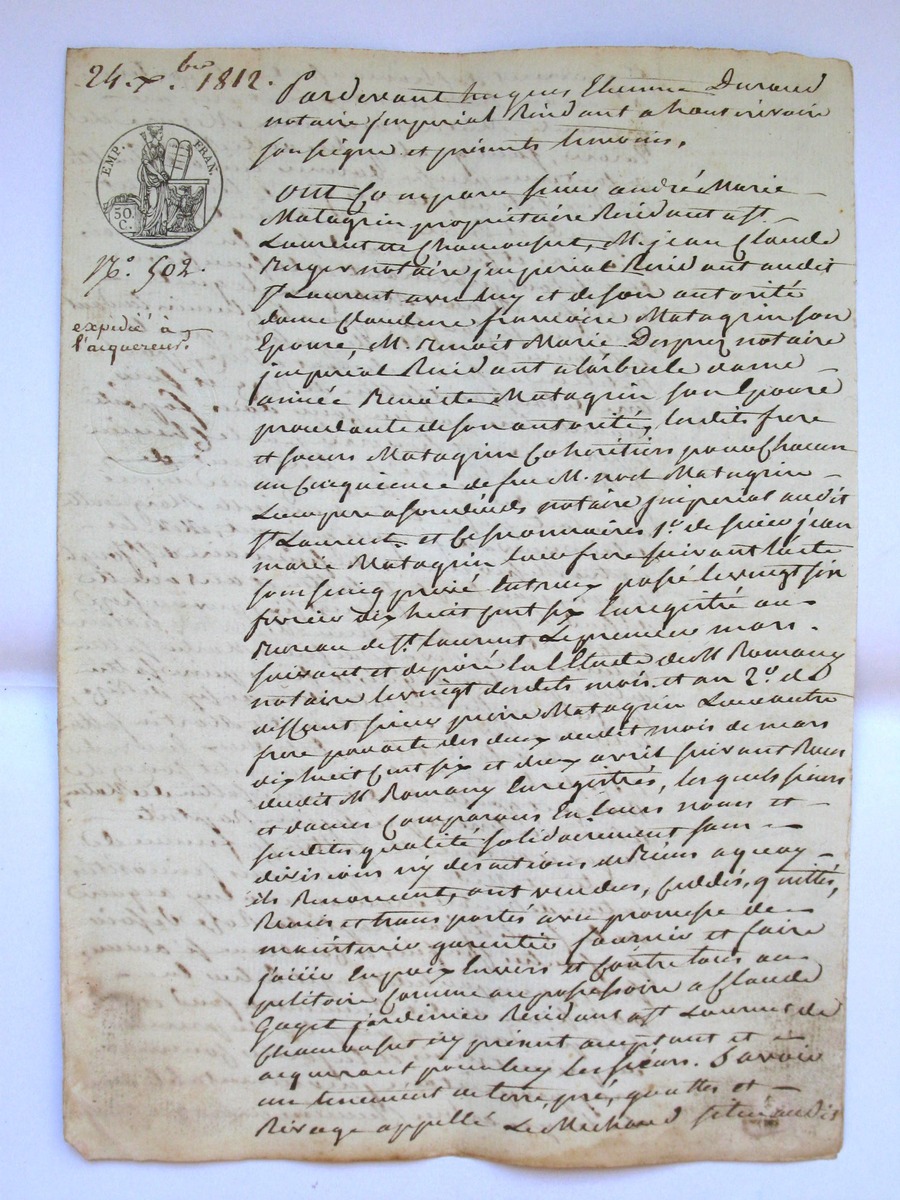 24 xbre 1812.
EMP. FRAN.
50. C.
N.º 502.
expedié à
l'aquereur.
Pardevant hugues Etienne Durand
notaire jmperial Residant a haute rivoire
soussigné et présents temoins,
Ont Comparu sieur andré Marie
Matagrin propriétaire Residant a st
Laurent de Chamousset, M. jean Claude
Berger notaire jmperial Residant audit
st Laurent avec luy et de son autorité
dame Claudine francoise Matagrin son
Epouse, M. Benoit Marie Desprez notaire
jmperial Residant a larbresle dame
aimée Benoite Matagrin son Epouse
procédante de son autorité, lesdits frere
et soeurs Matagrin Cohéritiers pour Chacun
un Cinquieme de feu M. noel Matagrin
Leur pere a son décès notaire jmperial audit
st Laurent, et Cessionnaires 1º. de sieur jean
marie Matagrin leur frere suivant lacte
sous seing privé entreux passé le vingt six
fevrier dix huit cent six Enregistré au
Bureau de st. Laurent Le premier mars
suivant et déposé En lEtude de M Romany
notaire le vingt desdits mois et an 2º. de
sieur pierre Matagrin Leur autre
frere par acte des deux dudit mois de mars
dix huit cent six et deux avril suivant Recus
dudit M Romany Enregistrés, lesquels sieurs
et dames Comparans En leurs noms et
susdites qualité solidairement sans
division ny des actions de Biens a quoy
ils Renoncent, ont vendus, Cueddés, quittés,
Remis et transportés avec promesse de
maintenir garentir fournir et faire
jouir En paix Envers et Contre tous au
petitoire Comme au possessoire a Claude
Goyet jardinier Residant a st Laurent de
Chamousset icy présent acceptant et
acquerant pour luy les siens. Savoir
un tenement de terre, pré, et
Rivage appellé Le Michaud situé audit